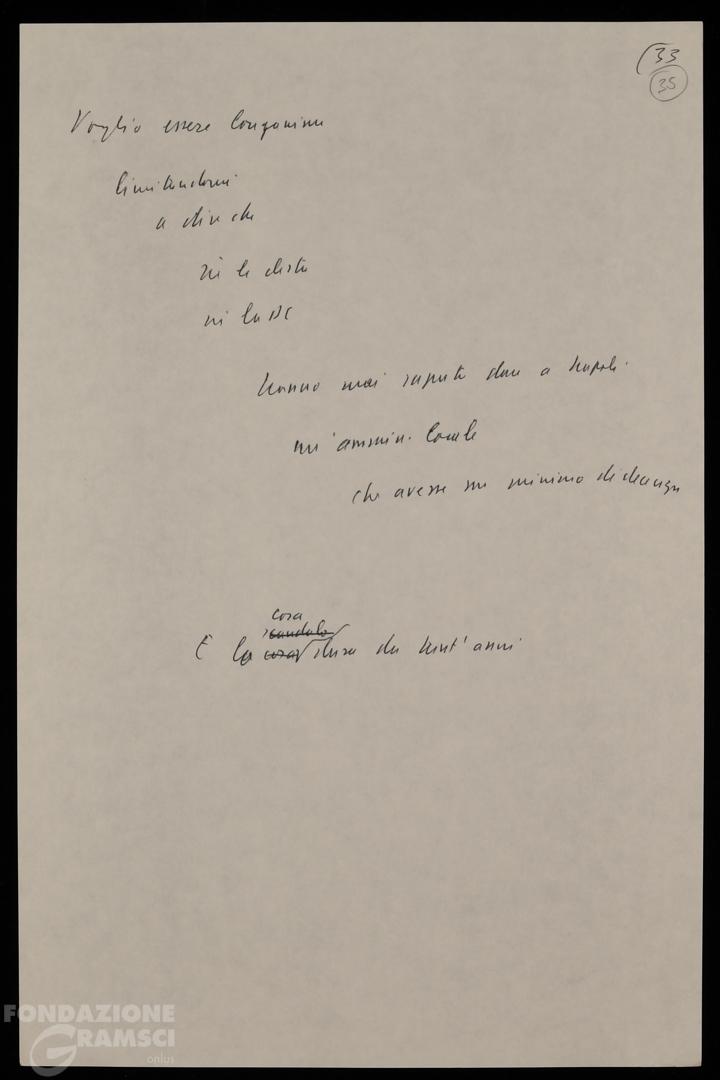 (33
35
Voglio essere longanime
limitandomi
a dire che
né le destre
né la DC
hanno mai saputo dare a Napoli
un'ammin. locale
che avesse un minimo di decenza
cosa
scandalo
E la cosa dura da tant'anni
FONDAZIONE
GRAMSCI
onlus